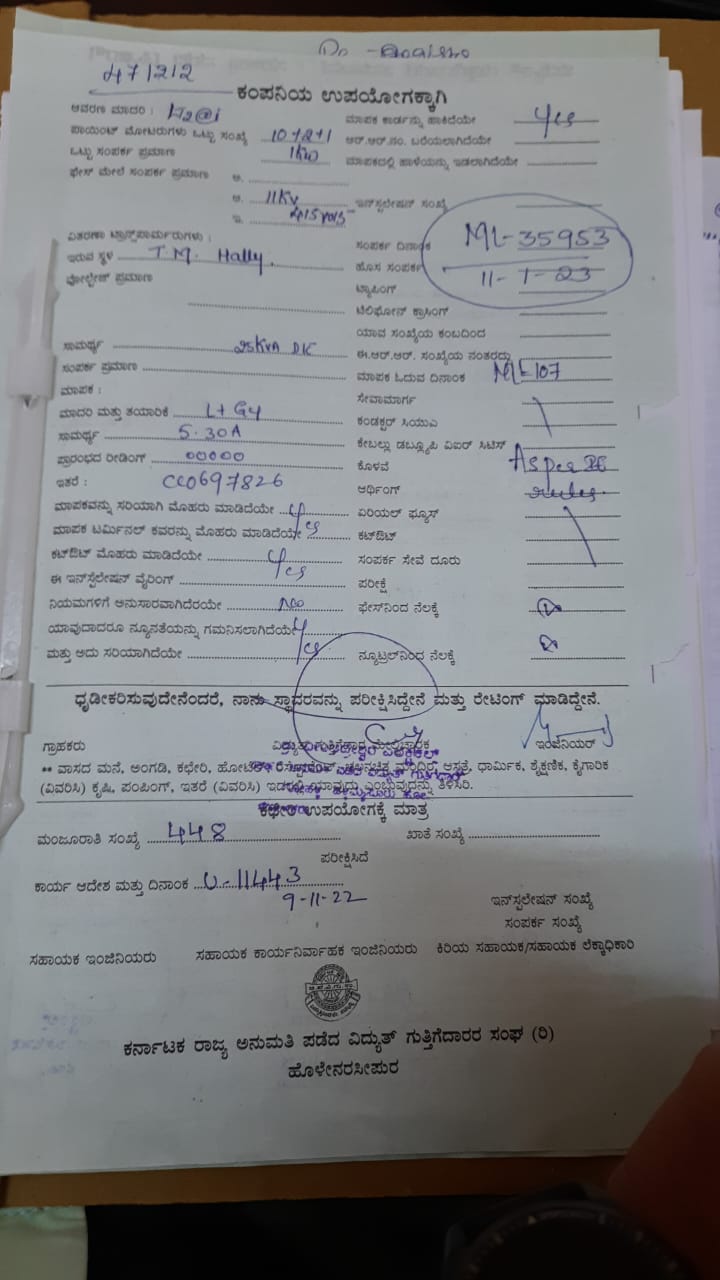 47/2/2
ಕಂಪನಿಯ ಉಪಯೋಗಕ್ಕಾಗಿ
ಆವರಣ ಮಾದರಿ : ಮಾಪಕ ಕಾರ್ಡನ್ನು ಹಾಕಿದೆಯೇ Yes
ಪಾಯಿಂಟ್ ಮೋಟರುಗಳು ಒಟ್ಟು ಸಂಖ್ಯೆ ಆರ್.ಆರ್.ನಂ. ಬರೆಯಲಾಗಿದೆಯೇ
ಒಟ್ಟು ಸಂಪರ್ಕ ಪ್ರಮಾಣ 1KW ಮಾಪಕದಲ್ಲಿ ಹಾಳೆಯನ್ನು ಇಡಲಾಗಿದೆಯೇ
ಫೇಸ್ ಮೇಲೆ ಸಂಪರ್ಕ ಪ್ರಮಾಣ ಅ.
ಆ. 11KV ಇನ್‌ಸ್ಟಲೇಷನ್ ಸಂಖ್ಯೆ
ಇ. 415 Volts
ವಿತರಣಾ ಟ್ರಾನ್ಸ್‌ಫಾರ್ಮರುಗಳು : ಸಂಪರ್ಕ ದಿನಾಂಕ ML-35953
ಇರುವ ಸ್ಥಳ T.M. Hally. ಹೊಸ ಸಂಪರ್ಕ 11-1-23
ವೋಲ್ಟೇಜ್ ಪ್ರಮಾಣ ಟ್ಯಾಪಿಂಗ್
ಟೆಲಿಫೋನ್ ಕ್ರಾಸಿಂಗ್
ಯಾವ ಸಂಖ್ಯೆಯ ಕಂಬದಿಂದ
ಸಾಮರ್ಥ್ಯ 25KVA ಈ.ಆರ್.ಆರ್. ಸಂಖ್ಯೆಯ ನಂತರದ್ದು
ಸಂಪರ್ಕ ಪ್ರಮಾಣ ಮಾಪಕ ಓದುವ ದಿನಾಂಕ ML-107
ಮಾಪಕ : ಸೇವಾಮಾರ್ಗ
ಮಾದರಿ ಮತ್ತು ತಯಾರಿಕೆ L+G4 ಕಂಡಕ್ಟರ್ ಸಿಯುಎ
ಸಾಮರ್ಥ್ಯ 5-30A ಕೇಬಲ್ಲು ಡಬ್ಲ್ಯೂಪಿ ವಿಐರ್ ಸಿಟಿಸ್
ಪ್ರಾರಂಭದ ರೀಡಿಂಗ್ 00000 ಕೊಳವೆ As per
ಇತರೆ : CC0697826 ಆರ್ಥಿಂಗ್ rules.
ಮಾಪಕವನ್ನು ಸರಿಯಾಗಿ ಮೊಹರು ಮಾಡಿದೆಯೇ Yes ಏರಿಯಲ್ ಫ್ಯೂಸ್
ಮಾಪಕ ಟರ್ಮಿನಲ್ ಕವರನ್ನು ಮೊಹರು ಮಾಡಿದೆಯೇ ಕಟ್‌ಔಟ್
ಕಟ್‌ಔಟ್ ಮೊಹರು ಮಾಡಿದೆಯೇ Yes ಸಂಪರ್ಕ ಸೇವೆ ದೂರು
ಈ ಇನ್‌ಸ್ಟಲೇಷನ್ ವೈರಿಂಗ್ ಪರೀಕ್ಷೆ
ನಿಯಮಗಳಿಗೆ ಅನುಸಾರವಾಗಿದೆರಯೇ No ಫೇಸ್‌ನಿಂದ ನೆಲಕ್ಕೆ
ಯಾವುದಾದರೂ ನ್ಯೂನತೆಯನ್ನು ಗಮನಿಸಲಾಗಿದೆಯೇ Yes
ಮತ್ತು ಅದು ಸರಿಯಾಗಿದೆಯೇ ನ್ಯೂಟ್ರಲ್‌ನಿಂದ ನೆಲಕ್ಕೆ
ಧೃಡೀಕರಿಸುವುದೇನೆಂದರೆ, ನಾನು ಸ್ಥಾದರವನ್ನು ಪರೀಕ್ಷಿಸಿದ್ದೇನೆ ಮತ್ತು ರೇಟಿಂಗ್ ಮಾಡಿದ್ದೇನೆ.
ಗ್ರಾಹಕರು ವಿದ್ಯುತ್ ಗುತ್ತಿಗೆದಾರ ಮೇಲ್ವಿಚಾರಕ ಇಂಜಿನಿಯರ್
** ವಾಸದ ಮನೆ, ಅಂಗಡಿ, ಕಛೇರಿ, ಹೋಟೆಲ್ ರೆಸ್ಟೋರೆಂಟ್, ಚಲನಚಿತ್ರ ಮಂದಿರ, ಆಸ್ಪತ್ರೆ, ಧಾರ್ಮಿಕ, ಶೈಕ್ಷಣಿಕ, ಕೈಗಾರಿಕ
(ವಿವರಿಸಿ) ಕೃಷಿ, ಪಂಪಿಂಗ್, ಇತರೆ (ವಿವರಿಸಿ) ಇಡಲ್ಪಟ್ಟ ಯಾವುದು ಎಂಬುವುದನ್ನು ತಿಳಿಸಿರಿ.
ಕಛೇರಿ ಉಪಯೋಗಕ್ಕೆ ಮಾತ್ರ
ಮಂಜೂರಾತಿ ಸಂಖ್ಯೆ 448 ಖಾತೆ ಸಂಖ್ಯೆ
ಪರೀಕ್ಷಿಸಿದೆ
ಕಾರ್ಯ ಆದೇಶ ಮತ್ತು ದಿನಾಂಕ U-11443
9-11-22 ಇನ್‌ಸ್ಟಲೇಷನ್ ಸಂಖ್ಯೆ
ಸಂಪರ್ಕ ಸಂಖ್ಯೆ
ಸಹಾಯಕ ಇಂಜಿನಿಯರು ಸಹಾಯಕ ಕಾರ್ಯನಿರ್ವಾಹಕ ಇಂಜಿನಿಯರು ಕಿರಿಯ ಸಹಾಯಕ/ಸಹಾಯಕ ಲೆಕ್ಕಾಧಿಕಾರಿ
ಕರ್ನಾಟಕ ರಾಜ್ಯ ಅನುಮತಿ ಪಡೆದ ವಿದ್ಯುತ್ ಗುತ್ತಿಗೆದಾರರ ಸಂಘ (ರಿ)
ಹೊಳೇನರಸೀಪುರ